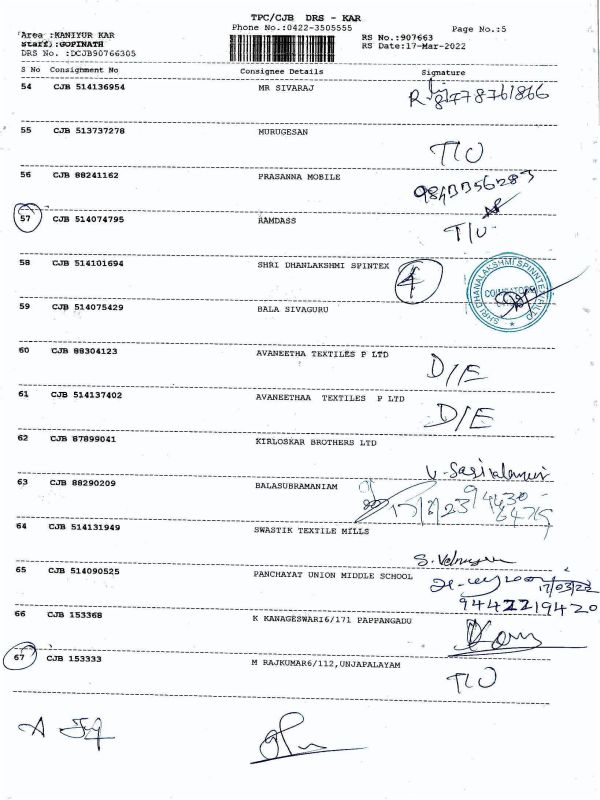 TPC/CJB DRS - KAR
Phone No.:0422-3505555
Page No.:5
Area :KANIYUR KAR
Staff:GOPINATH
DRS No. :DCJB90766305
RS No.:907663
RS Date:17-Mar-2022
S No Consignment No Consignee Details Signature
54 CJB 514136954 MR SIVARAJ
55 CJB 513737278 MURUGESAN
T/U
56 CJB 88241162 PRASANNA MOBILE
57 CJB 514074795 RAMDASS
T/U
58 CJB 514101694 SHRI DHANLAKSHMI SPINTEX
4
59 CJB 514075429 BALA SIVAGURU
60 CJB 88304123 AVANEETHA TEXTILES P LTD
D/E
61 CJB 514137402 AVANEETHAA TEXTILES P LTD
D/E
62 CJB 87899041 KIRLOSKAR BROTHERS LTD
63 CJB 88290209 BALASUBRAMANIAM
64 CJB 514131949 SWASTIK TEXTILE MILLS
65 CJB 514090525 PANCHAYAT UNION MIDDLE SCHOOL
9442219420
66 CJB 153368 K KANAGESWARI6/171 PAPPANGADU
67 CJB 153333 M RAJKUMAR6/112,UNJAPALAYAM
T/U